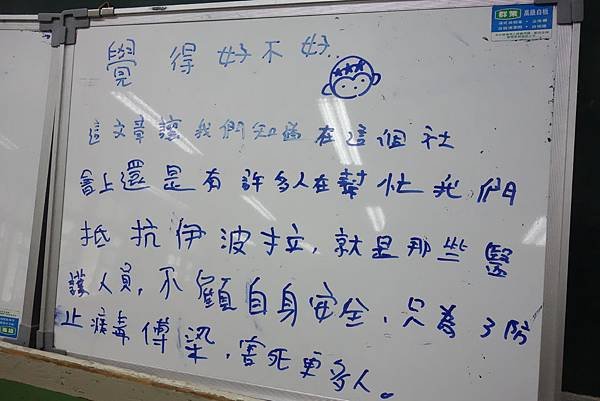 覺得好不好..
這文章讓我們知道在這個社
會上還是有許多人在幫忙我們
抵抗伊波拉,就是那些醫
護人員,不顧自身安全,只為了防
止病毒傅染,害死更多人。
群業 高級白板